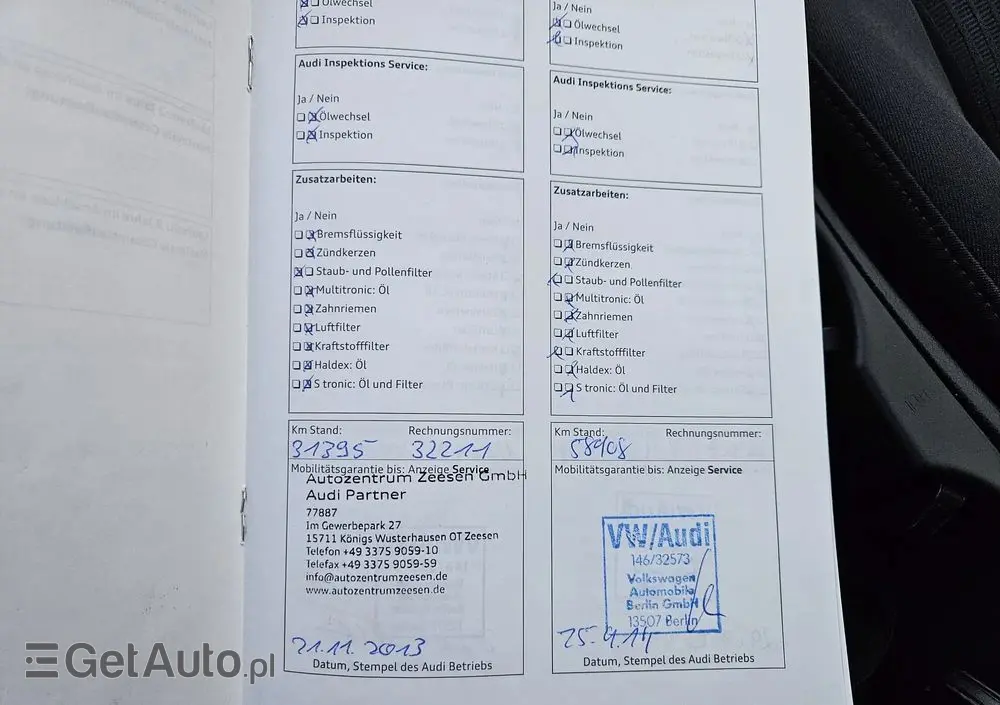 Ölwechsel
Inspektion
Audi Inspektions Service:
Ja / Nein
Ölwechsel
Inspektion
Zusatzarbeiten:
Ja / Nein
Bremsflüssigkeit
Zündkerzen
Staub- und Pollenfilter
Multitronic: Öl
Zahnriemen
Luftfilter
Kraftstofffilter
Haldex: Öl
S tronic: Öl und Filter
Km Stand: Rechnungsnummer:
31395 32211
Mobilitätsgarantie bis: Anzeige Service
Autozentrum Zeesen GmbH
Audi Partner
77887
Im Gewerbepark 27
15711 Königs Wusterhausen OT Zeesen
Telefon +49 3375 9059-10
Telefax +49 3375 9059-59
info@autozentrumzeesen.de
www.autozentrumzeesen.de
21.11.2013
Datum, Stempel des Audi Betriebs
Ja / Nein
Ölwechsel
Inspektion
Audi Inspektions Service:
Ja / Nein
Ölwechsel
Inspektion
Zusatzarbeiten:
Ja / Nein
Bremsflüssigkeit
Zündkerzen
Staub- und Pollenfilter
Multitronic: Öl
Zahnriemen
Luftfilter
Kraftstofffilter
Haldex: Öl
S tronic: Öl und Filter
Km Stand: Rechnungsnummer:
58908
Mobilitätsgarantie bis: Anzeige Service
VW/Audi
146/32573
Volkswagen
Automobile
Berlin GmbH
13507 Berlin
25.9.14
Datum, Stempel des Audi Betriebs
GetAuto.pl